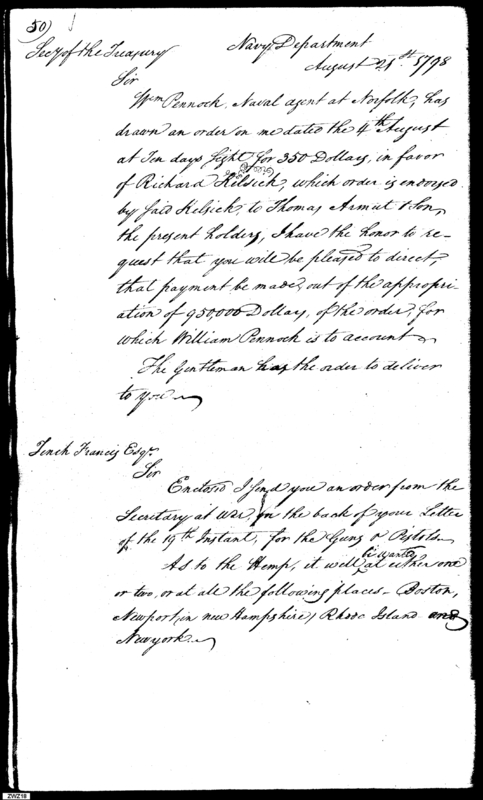 50)
Secy of the Treasury
Navy Department
August 21st. 1798
Sir
Wm Pennock, Naval agent at Norfolk, has
drawn an order on me dated the 4th August
at Ten days sight for 350 Dollars, in favor
of Richard Kelsick, which order is endorsed
by said Kelsick, to Thomas Armat & Son,
the present holders, I have the honor to re-
quest that you will be pleased to direct
that payment be made, out of the appropri-
ation of 950,000 Dollars, of the order, for
which William Pennock is to account.
The Gentleman has the order to deliver
to you.
Tench Francis Esqr.
Sir
Enclosed I send you an order from the
Secretary at War, on the back of your Letter
of the 19th Instant, for the Guns & Pistols.
be wanted
As to the Hemp, it will at either one
or two, or at all the following places - Boston,
Newport, in new Hampshire, Rhode Island and
New york.
ZWZ18